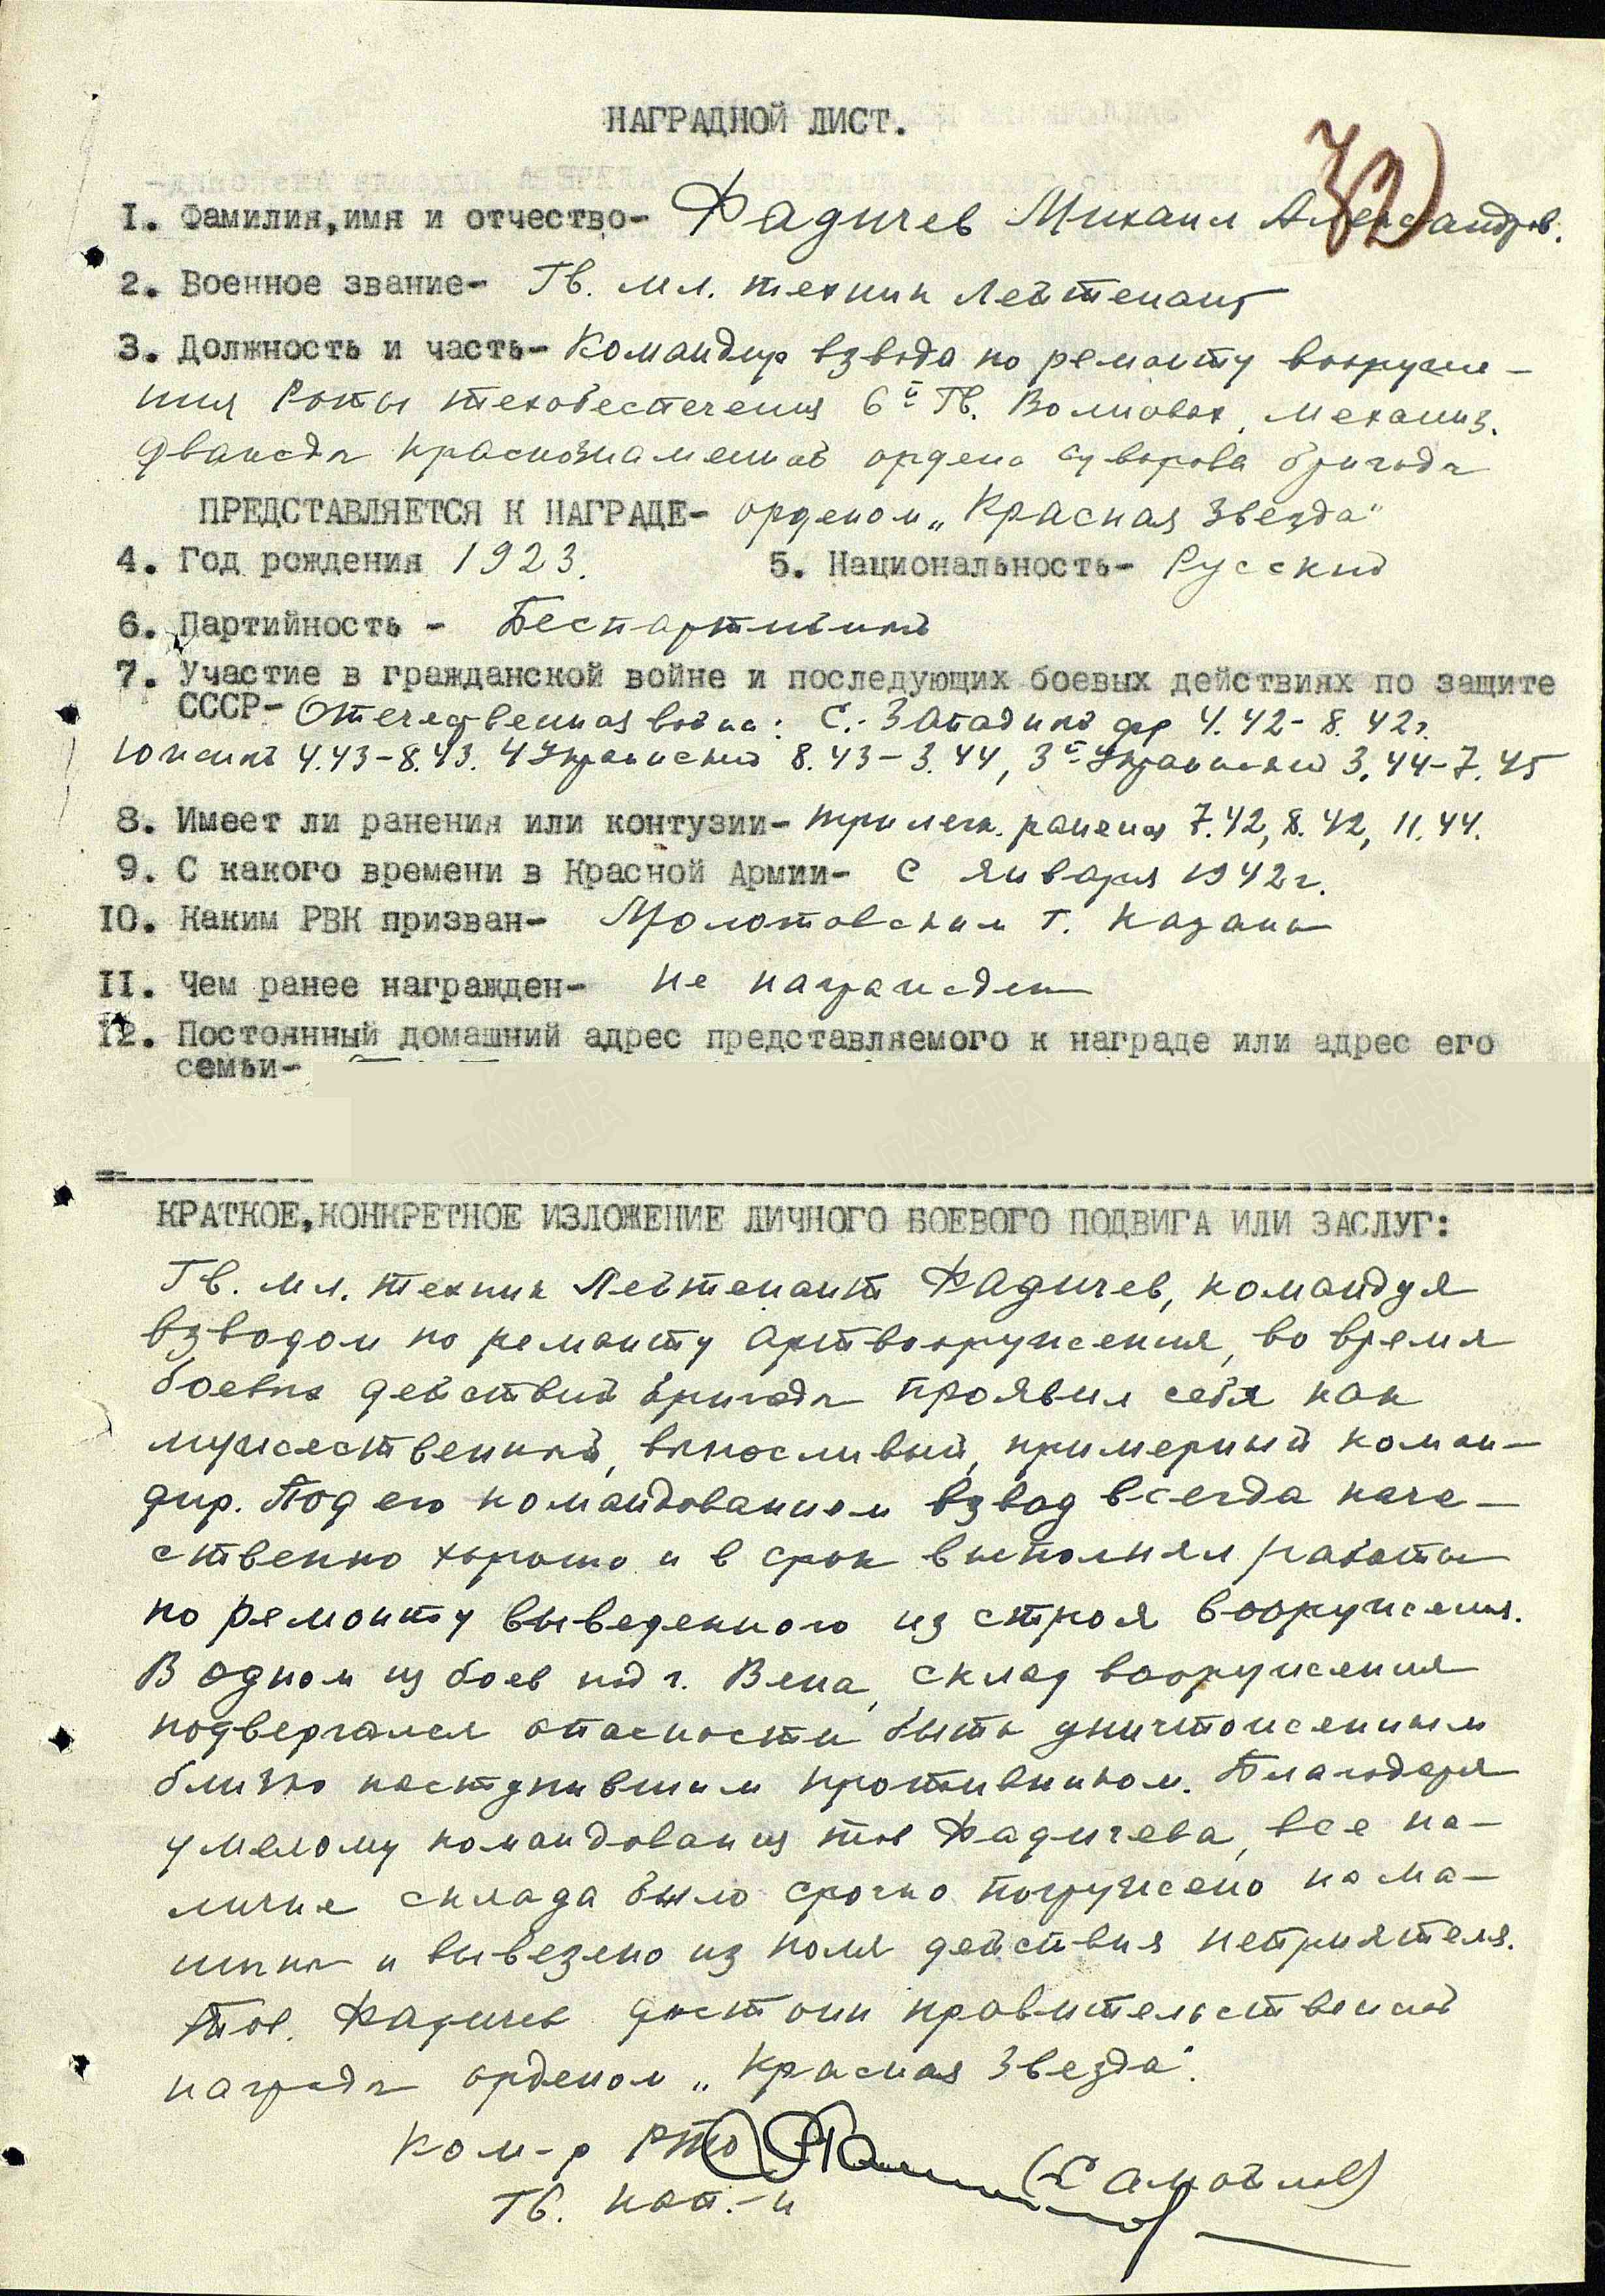 НАГРАДНОЙ ЛИСТ.
72)
I. Фамилия, имя и отчество- Фадичев Михаил Александров.
2. Военное звание- Гв. мл. техник лейтенант
3. Должность и часть- Командир взвода по ремонту вооруже-
ния Роты техобеспечения 6й Гв. Волновах. механиз.
дважды краснознаменной ордена Суворова бригады
ПРЕДСТАВЛЯЕТСЯ К НАГРАДЕ- орденом „Красная Звезда"
4. Год рождения 1923. 5. Национальность- Русский
6. Партийность - Беспартийный
7. Участие в гражданской войне и последующих боевых действиях по защите
СССР- Отечественная война: С.-Западный фр 4.42- 8.42г.
Южный 4.43-8.43. 4 Украинский 8.43-3.44, 3й Украинский 3.44-7.45
8. Имеет ли ранения или контузии- три легк. ранения 7.42, 8.42, 11.44.
9. С какого времени в Красной Армии- с января 1942г.
10. Каким РВК призван- Молотовским г. Казань
II. Чем ранее награжден- не награжден
I2. Постоянный домашний адрес представляемого к награде или адрес его
семьи-
КРАТКОЕ, КОНКРЕТНОЕ ИЗЛОЖЕНИЕ ЛИЧНОГО БОЕВОГО ПОДВИГА ИЛИ ЗАСЛУГ:
Гв. мл. техник Лейтенант Фадичев, командуя
взводом по ремонту артвооружения, во время
боевых действий бригады проявил себя как
мужественный, выносливый, примерный коман-
дир. Под его командованием взвод всегда каче-
ственно хорошо и в срок выполнял работы
по ремонту выведенного из строя вооружения.
В одном из боев под г. Вена, склад вооружения
подвергался опасности быть уничтоженным
близко наступившим противником. Благодаря
умелому командования тов Фадичева, все на-
личие склада было срочно погружено на ма-
шины и вывезено из поля действия неприятеля.
Тов. Фадичев достоин правительственной
награды орденом „Красная Звезда".
Ком-р РТО (Самойлов)
Гв. кап.-н
ПАМЯТЬ НАРОДА